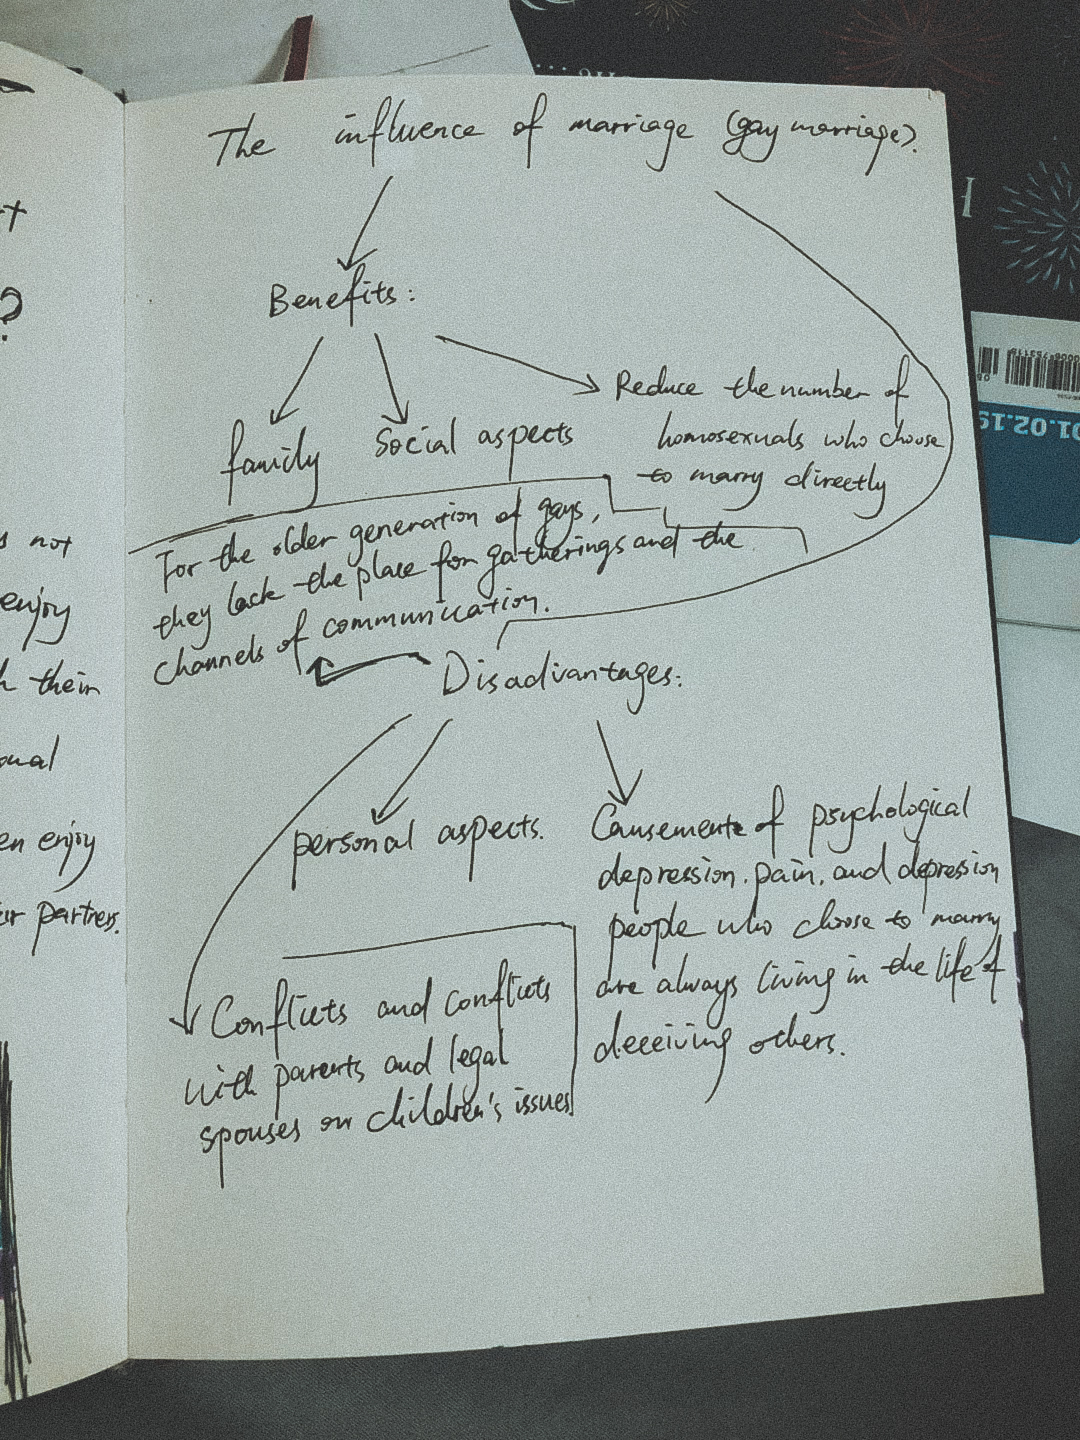 The influence of marriage (gay marriage).
Benefits:
family
Social aspects
Reduce the number of
homosexuals who choose
to marry directly
For the older generation of gays,
they lack the place for gatherings and the
channels of communication.
Disadvantages:
personal aspects.
Causemente of psychological
depression, pain, and depression
people who choose to marry
are always living in the life of
deceiving others.
Conflicts and conflicts
with parents and legal
spouses on children's issues
?
not
enjoy
their
enjoy
partners.
01.02.19